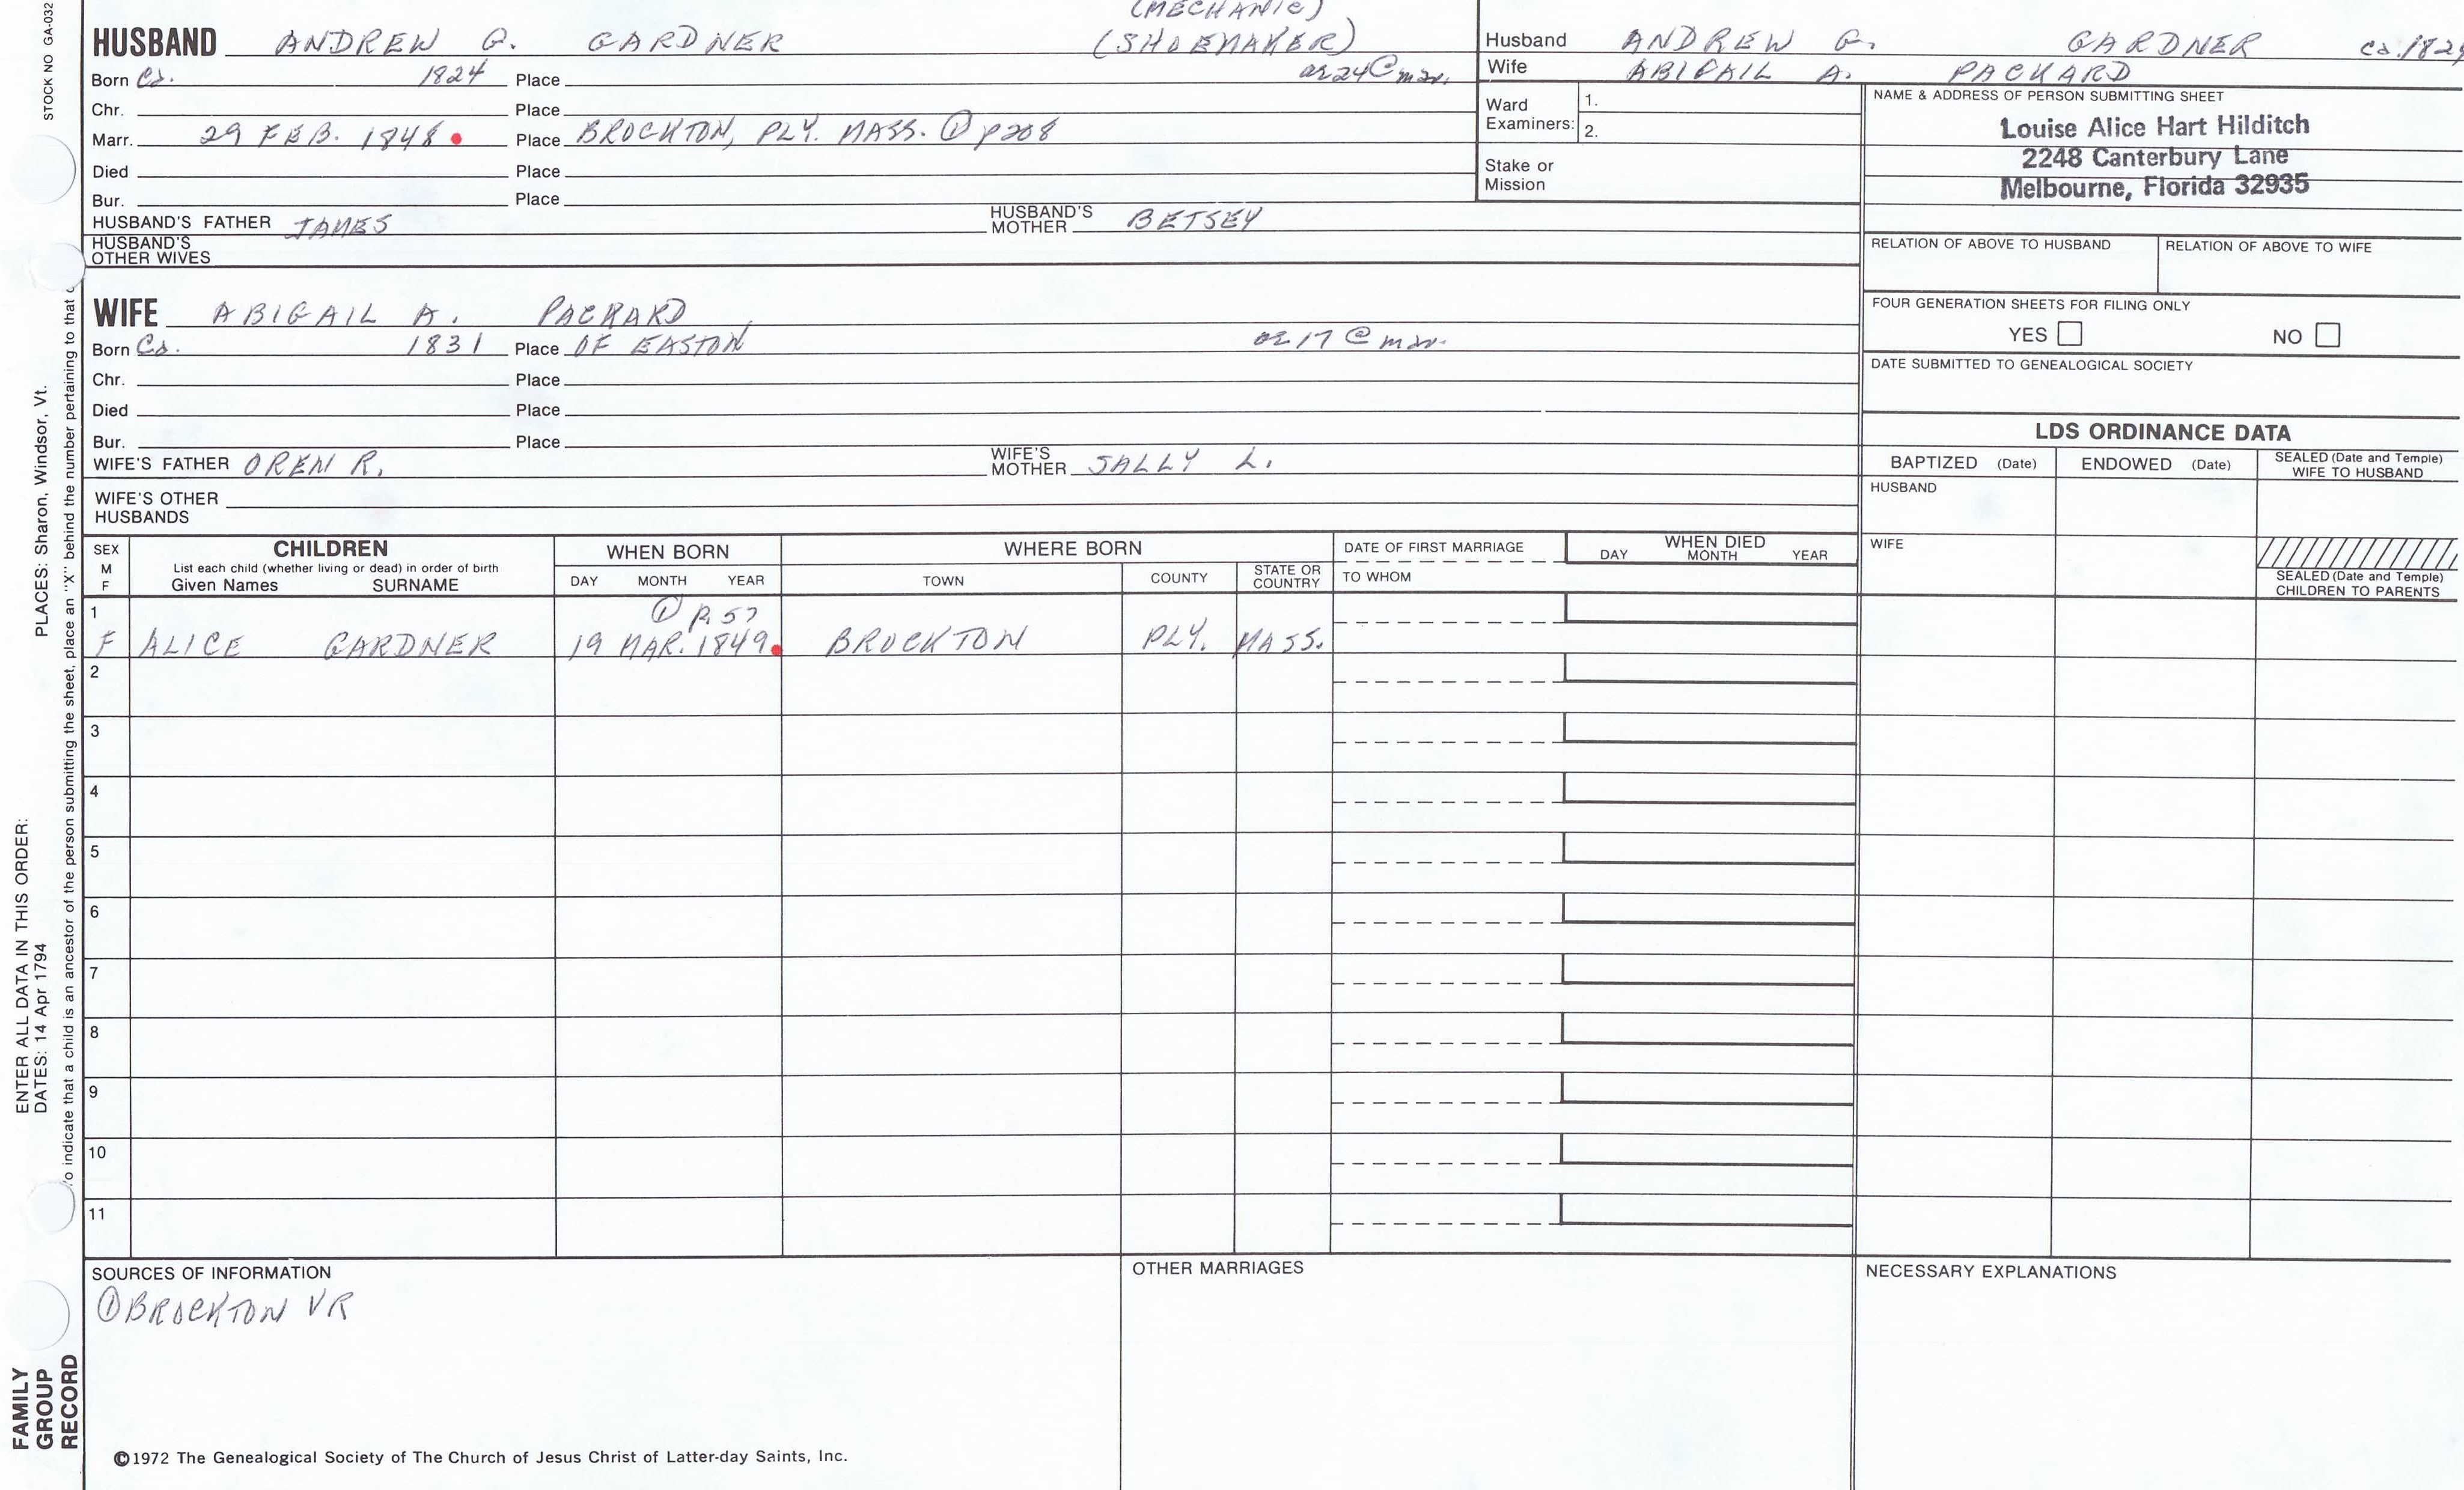 STOCK NO GA-032
PLACES: Sharon, Windsor, Vt.
ENTER ALL DATA IN THIS ORDER:
DATES: 14 Apr 1794
o indicate that a child is an ancestor of the person submitting the sheet, place an "X" behind the number pertaining to that
FAMILY
GROUP
RECORD
(MECHANIC)
HUSBAND ANDREW G. GARDNER (SHOEMAKER)
Born Ca. 1824 Place ae 24 @ mar.
Chr. Place
Marr. 29 FEB. 1848 Place BROCKTON, PLY. MASS. ① p208
Died Place
Bur. Place
HUSBAND'S FATHER JAMES HUSBAND'S MOTHER BETSEY
HUSBAND'S
OTHER WIVES
Husband ANDREW G. GARDNER ca. 1824
Wife ABIGAIL A. PACKARD
Ward
Examiners:
1.
2.
Stake or
Mission
NAME & ADDRESS OF PERSON SUBMITTING SHEET
Louise Alice Hart Hilditch
2248 Canterbury Lane
Melbourne, Florida 32935
RELATION OF ABOVE TO HUSBAND RELATION OF ABOVE TO WIFE
FOUR GENERATION SHEETS FOR FILING ONLY
YES NO
DATE SUBMITTED TO GENEALOGICAL SOCIETY
WIFE ABIGAIL A. PACKARD
Born Ca. 1831 Place OF EASTON ae 17 @ mar.
Chr. Place
Died Place
Bur. Place
WIFE'S FATHER OREN R. WIFE'S MOTHER SALLY L.
WIFE'S OTHER
HUSBANDS
LDS ORDINANCE DATA
BAPTIZED (Date) ENDOWED (Date) SEALED (Date and Temple) WIFE TO HUSBAND
HUSBAND
WIFE
SEALED (Date and Temple)
CHILDREN TO PARENTS
SEX
M
F
CHILDREN
List each child (whether living or dead) in order of birth
Given Names SURNAME
WHEN BORN
DAY MONTH YEAR
WHERE BORN
TOWN COUNTY STATE OR COUNTRY
DATE OF FIRST MARRIAGE
TO WHOM
WHEN DIED
DAY MONTH YEAR
1 ① P. 57
F ALICE GARDNER 19 MAR. 1849. BROCKTON PLY. MASS.
2
3
4
5
6
7
8
9
10
11
SOURCES OF INFORMATION
① BROCKTON VR
OTHER MARRIAGES
NECESSARY EXPLANATIONS
©1972 The Genealogical Society of The Church of Jesus Christ of Latter-day Saints, Inc.